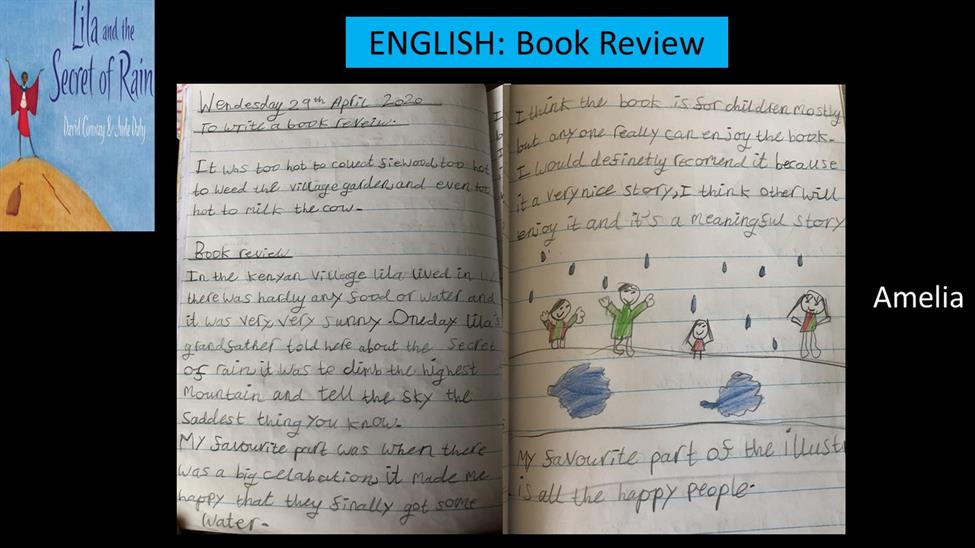 Lila and the
Secret of Rain
David Conway & Jude Daly
ENGLISH: Book Review
Wendesday 29th April 2020
To write a book reveiw.
It was too hot to collect fiewood, too hot
to weed the village garden, and even too
hot to milk the cow.
Book review
In the Kenyan village lila lived in
there was hardly any food or water and
it was very very sunny. Oneday lila's
grandfather told here about the secret
of rain it was to climb the highest
Mountain and tell the sky the
saddest thing you know.
My favourite part was when there
was a big celabution, it made me
happy that they finally got some
water.
I think the book is for children mostly
but any one really can enjoy the book.
I would definetly recomend it because
it a very nice story, I think other will
enjoy it and it's a meaningful story
My favourite part of the illust
is all the happy people.
Amelia